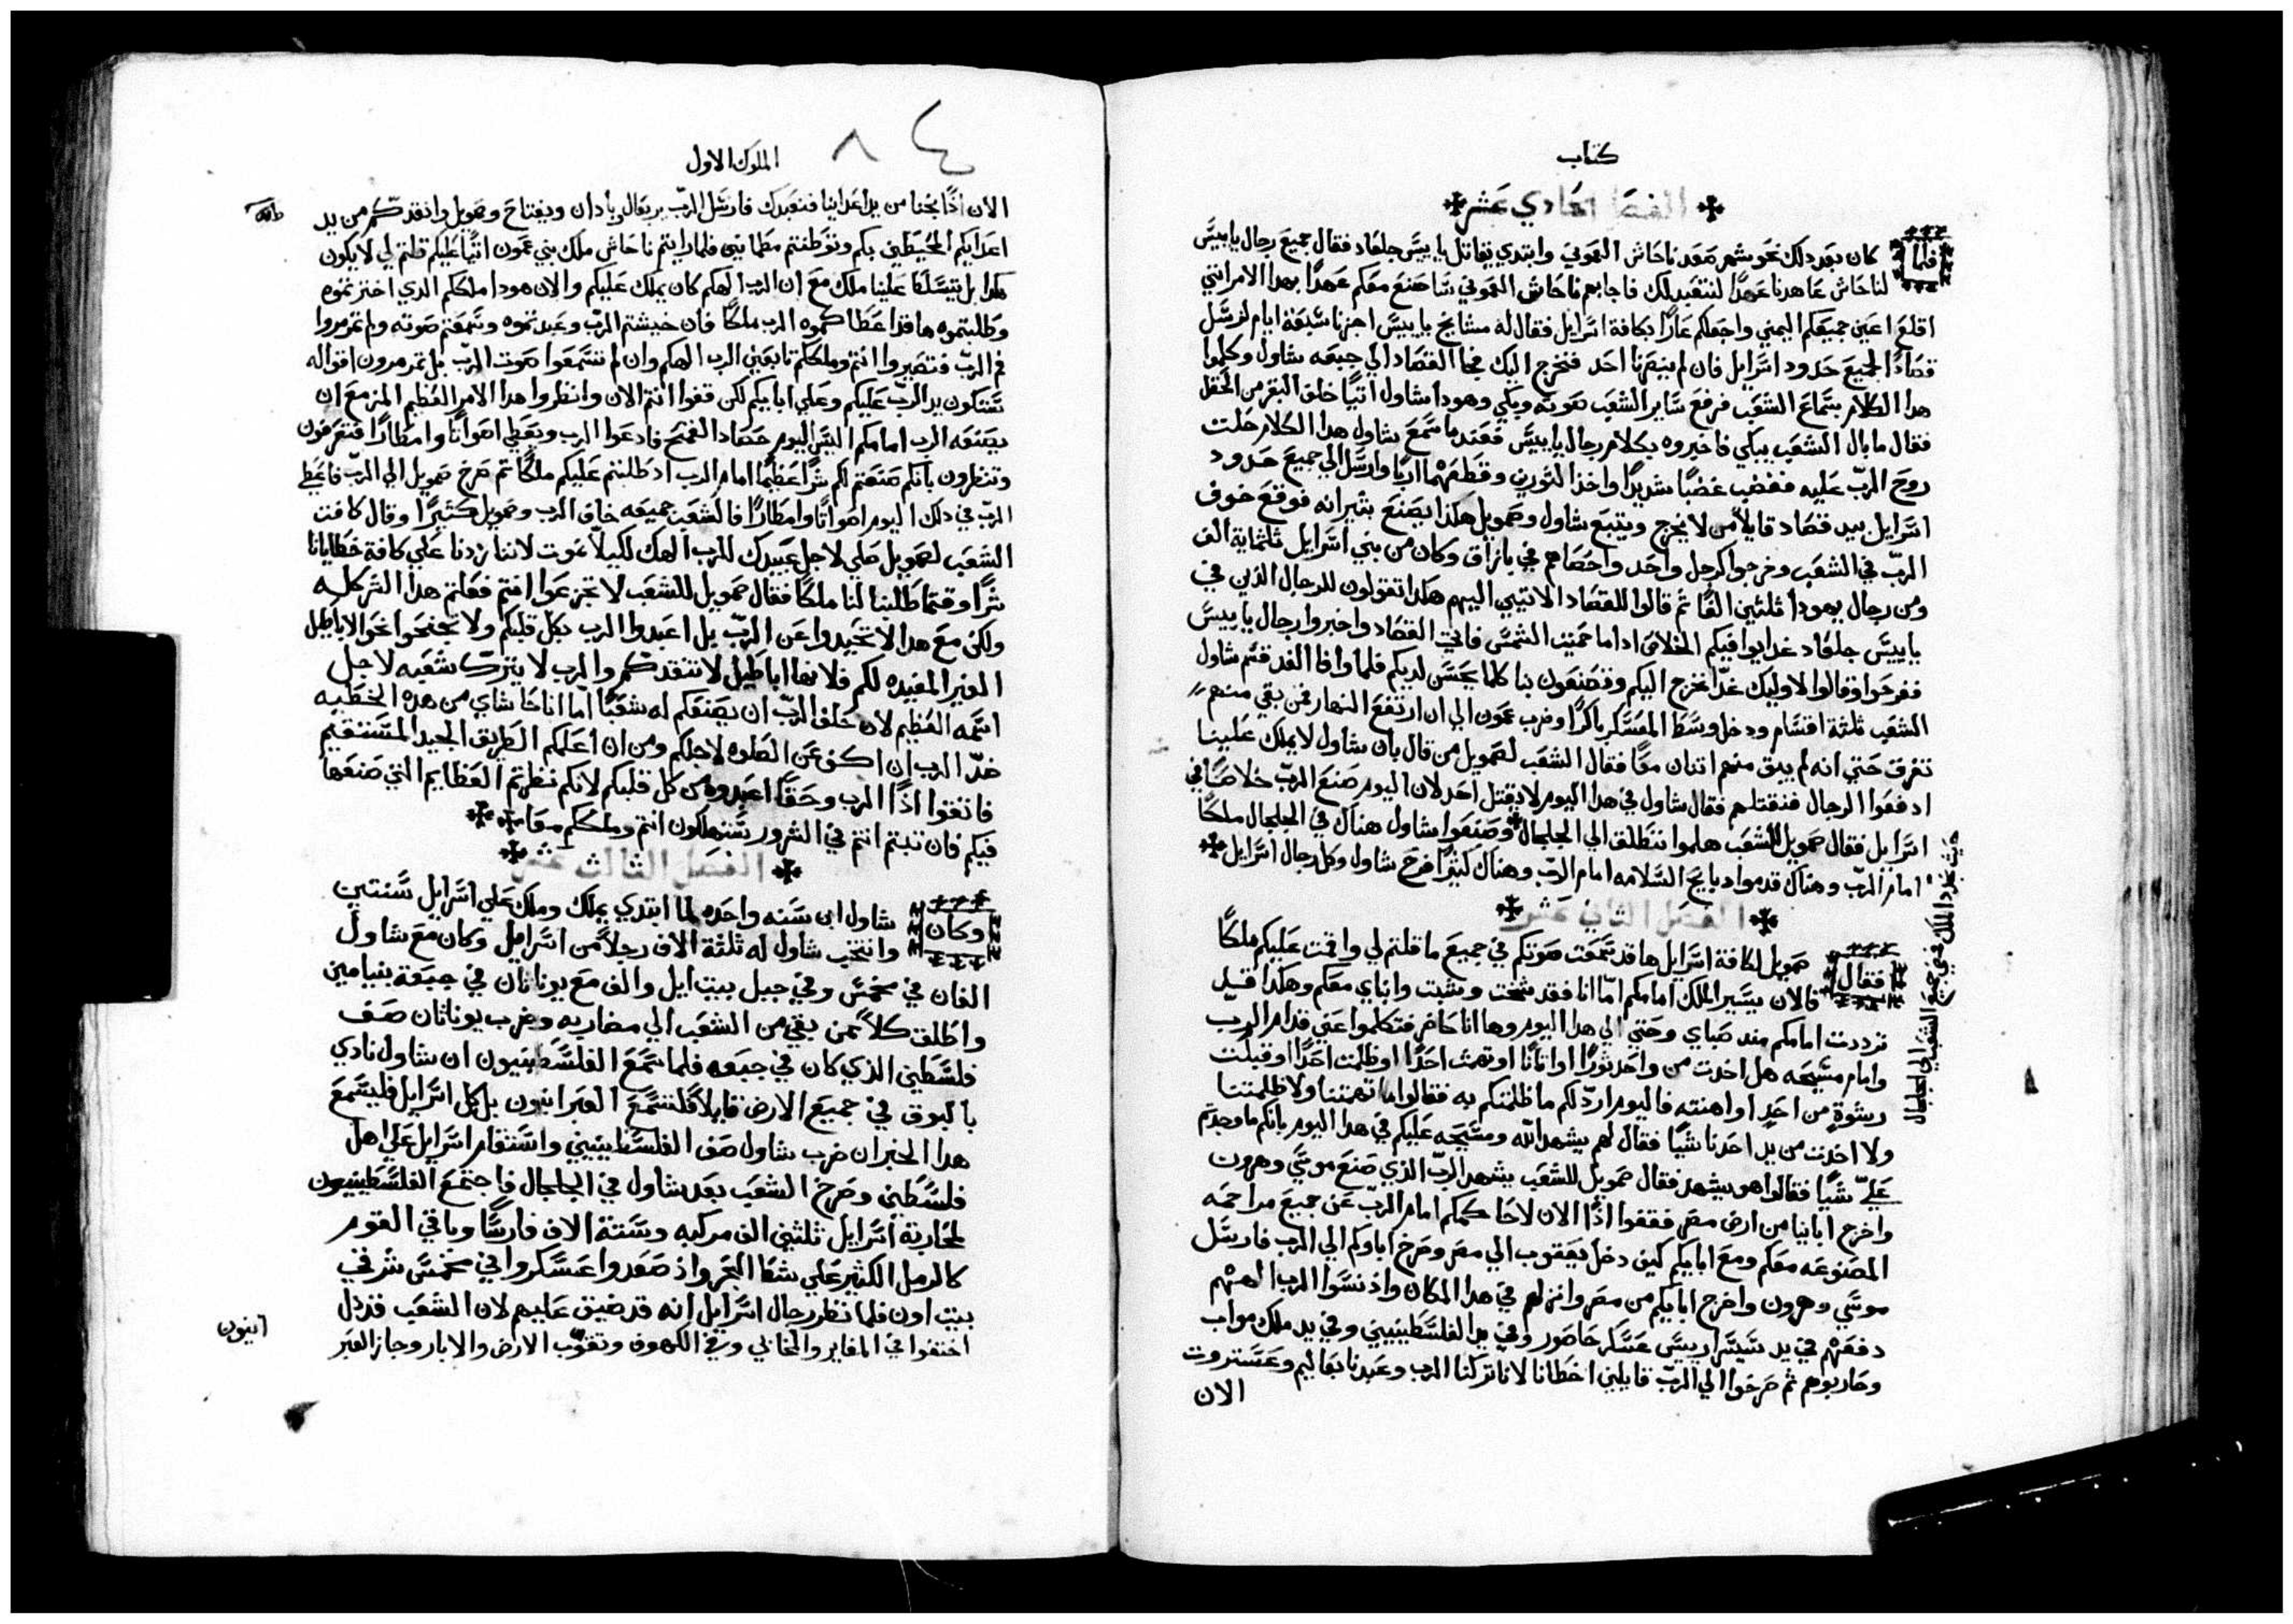 كتاب
الفصل الحادي عشر
فلما كان بعد دلك نحو شهر صعد ناحاش العموني وابتدي يقاتل يابيس جلعاد فقال جميع رجال يابيس
لناحاش عاهدنا عهدًا لنتعبد لك فاجابهم ناحاش العموني سأصنع معكم عهدًا بهدا الامر انني
اقلع اعين جميعكم اليمني واجعلكم عارًا بكافة اسرايل فقال له مشايخ يابيس اجزنا سبعة ايام لنرسل
قصادًا لجميع حدود اسرايل فان لم ينصرنا احد فنخرج اليك فجا القصاد الي جبعه شاول وكلموا
هدا الكلام بسماع الشعب فرفع ساير الشعب صوته وبكي وهودا شاول اتيًا خلف البقر من الحقل
فقال ما بال الشعب يبكي فاخبروه بكلام رجال يابيس فعند ما سمع شاول هدا الكلام حلت
روح الربّ عليه فغضب غضبًا شديدًا واخذ الثورين وقطعهما اربًا وارسل الي جميع حدود
اسرايل بيد قصاد قايلاً من لا يخرج ويتبع شاول وصمويل هكذا يصنع بثيرانه فوقع خوف
الربّ في الشعب وخرجوا كرجل واحد واحصاهم في بازاق وكان من بني اسرايل ثلثماية الف
ومن رجال يهودا ثلثين الفًا ثم قالوا للقصاد الاتيين اليهم هكدا تقولون للرجال الذين في
يابيس جلعاد غدا يوافيكم الخلاص ادا ما حميت الشمس فاتي القصاد واخبروا رجال يابيس
ففرحوا وقالوا لاوليك غدًا نخرج اليكم وتصنعون بنا كلما يحسن لديكم فلما وافا الغد قسم شاول
الشعب ثلثة اقسام ودخل وسط المعسكر باكرًا وضرب عمون الي ان ارتفع النهار فمن بقي منهم
تفرق حتي انه لم يبق منهم اتنان معًا فقال الشعب لصمويل من قال بان شاول لا يملك علينا
ادفعوا الرجال فنقتلهم فقال شاول في هدا اليوم لا يقتل احد لان اليوم صنع الربّ خلاصًا في
اسرايل فقال صمويل للشعب هلموا ننطلق الي الجلجال وصنعوا شاول هناك في الجلجال ملكًا
امام الربّ وهناك قدموا دبايح السلامه امام الربّ وهناك كثيرًا فرح شاول وكل رجال اسرايل
الفصل الثاني عشر
فقال صمويل لكافة اسرايل ها قد سمعت صوتكم في جميع ما قلتم لي واقمت عليكم ملكًا
فالان يسير الملك امامكم امّا انا فقد شخت وشبت وابناي معكم وهكدا قد
ترددت امامكم مند صباي وحتي الي هدا اليوم وها انا حاضر فتكلموا عني قدام الرب
وامام مسيحه هل اخدت من واحد ثورًا او اتانًا او تهمت احدًا او ظلمت احدًا او قبلت
رشوةٍ من احدٍ او اهنته فاليوم اردّ لكم ما ظلمتكم به فقالوا ما تهمتنا ولا ظلمتنا
ولا اخدت من يد احدنا شيًا فقال لهم يشهد الله ومسيحه عليكم في هدا اليوم بانكم ما وجدتم
عليّ شيًا فقالوا هو يشهد فقال صمويل للشعب يشهد الربّ الذي صنع موسي وهرون
واخرج ابانيا من ارض مصر فقفوا اذًا الان لاحاكمكم امام الربّ عن جميع مراحمه
المصنوعه معكم ومع ابايكم كيف دخل يعقوب الي مصر وصرخ اباوكم الي الرب فارسل
موسي وهرون واخرج ابايكم من مصر وانزلهم في هدا المكان واذ نسوا الرب الههم
دفعهم في يد سيسرا رييس عسكر حاصور وفي يد الفلسطينيين وفي يد ملك مواب
وحاربوهم ثم صرخوا الي الربّ قايلين اخطانا لاننا تركنا الرب وعبدنا بعاليم وعستروت
الان
الملوك الاول
٨٤
الان اذًا نجنا من يد اعداينا فنتعبدك فارسل الربّ يربعال وبادان ويفتاح وصمويل وانقدكم من يد
اعدايكم المحيطين بكم وتوطنتم مطمانين فلما رايتم ناحاش ملك بني عمون اتيًا عليكم قلتم لي لا يكون
هكدا بل يتسلط علينا ملك مع ان الرب الهكم كان يملك عليكم والان هودا ملككم الدي اخترتموه
وطلبتموه ها قد اعطاكموه الرب ملكًا فان خشيتم الربّ وعبدتموه وسمعتم صوته ولم تمرمروا
فم الربّ فتصيروا انتم وملككم تابعين الرب الهكم وان لم تسمعوا صوت الربّ بل تمرمرون اقواله
تكون يد الربّ عليكم وعلي ابايكم لكن قفوا انتم الان وانظروا هدا الامر العظيم المزمع ان
يصنعه الرب امامكم اليس اليوم حصاد القمح فادعوا الرب ويعطي اصواتًا وامطارًا فتعرفون
وتنظرون بانكم صنعتم لكم شرًا عظيمًا امام الرب اد طلبتم عليكم ملكًا تم صرخ صمويل الي الربّ فاعطي
الربّ في دلك اليوم اصواتًا وامطارًا فالشعب جميعه خاف الرب وصمويل كثيرًا وقال كافت
الشعب لصمويل صلي لاجل عبيدك للرب الهك لكيلا نموت لاننا زدنا علي كافة خطايانا
شرًا وقتما طلبنا لنا ملكًا فقال صمويل للشعب لا تجزعوا انتم فعلتم هدا الشر كله
ولكن مع هدا لا تحيدوا عن الربّ بل اعبدوا الرب بكل قلبكم ولا تجنحوا نحو الاباطيل
الغير المفيده لكم فلانها اباطيل لا تنقدكم والرب لا يترك شعبه لاجل
اسمه العظيم لان حلف الربّ ان يصنعكم له شعبًا امّا انا حاشاي من هده الخطيه
ضدّ الرب ان اكف عن الصلوه لاجلكم ومن ان اعلمكم الطريق الجيد المستقيم
فاتقوا اذًا الرب وحقًا اعبدوه من كل قلبكم لانكم نظرتم العظايم التي صنعها
فيكم فان تبتم انتم في الشرور ستهلكون انتم وملككم معًا
الفصل الثالث عشر
وكان شاول ابن سنه واحده لما ابتدي يملك وملك علي اسرايل سنتين
وانتخب شاول له ثلثة الاف رجلاً من اسرايل وكان مع شاول
الفان في مخمس وفي جبل بيت ايل والف مع يوناتان في جبعة بنيامين
واطلق كلاً ممن بقي من الشعب الي مضاربه وضرب يوناثان صف
فلسطين الذي كان في جبعه فلما سمع الفلسطينيون ان شاول نادي
بالبوق في جميع الارض قايلاً فلتسمع العبرانيون بل كل اسرايل فليسمع
هدا الخبر ان ضرب شاول صف الفلسطينيين واستقام اسرايل علي اهل
فلسطين وصرخ الشعب بعد شاول في الجلجال فاجتمع الفلسطينيون
لمحاربة اسرايل ثلثين الف مركبه وستة الاف فارسًا وباقي القوم
كالرمل الكثير علي شط البحر واذ صعدوا عسكروا في مخمس شرقي
بيت اون فلما نظر رجال اسرايل انه قد ضيق عليهم لان الشعب قد ذل
اختفوا في المغاير والمخابي وفي الكهوف وتقوب الارض والابار وجاز العبر
انيون